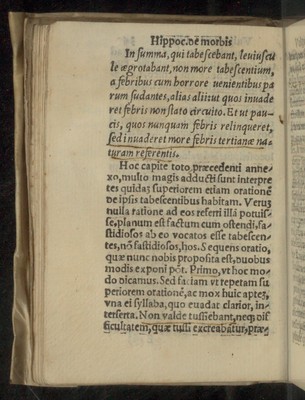 Hippoc. de morbis
In summa, qui tabescebant, leuiuscu
le ægrotabant, non more tabescentium,
a febribus cum horrore uenientibus pa
rum sudantes, alias aliiut quos inuade
ret febris non stato circuito. Et ut pau-
cis, quos nunquam febris relinqueret,
sed inuaderet more febris tertianæ na-
turam referentis.
Hoc capite toto præcedenti anne-
xo, multo magis adducti sunt interpre
tes quidaʒ superiorem etiam orationē
de ipsis tabescentibus habitam. Verūʒ
nulla ratione ad eos referri illā potuis-
se, planum est factum cum ostendi, fa-
stidiosos ab eo vocatos esse tabescen-
tes, nō fastidiosos, hos. Sequens oratio,
quæ nunc nobis proposita est, duobus
modis exponi pōt. Primo, vt hoc mo-
do dicamus. Sed faciam vt repetam su
periorem orationē, ac mox huic apteʒ,
vna ei syllaba, quo euadat clarior, in-
terserta. Non valde tussiebant, neqʒ dif
ficultatem, quæ tussi excreabātur, præ-